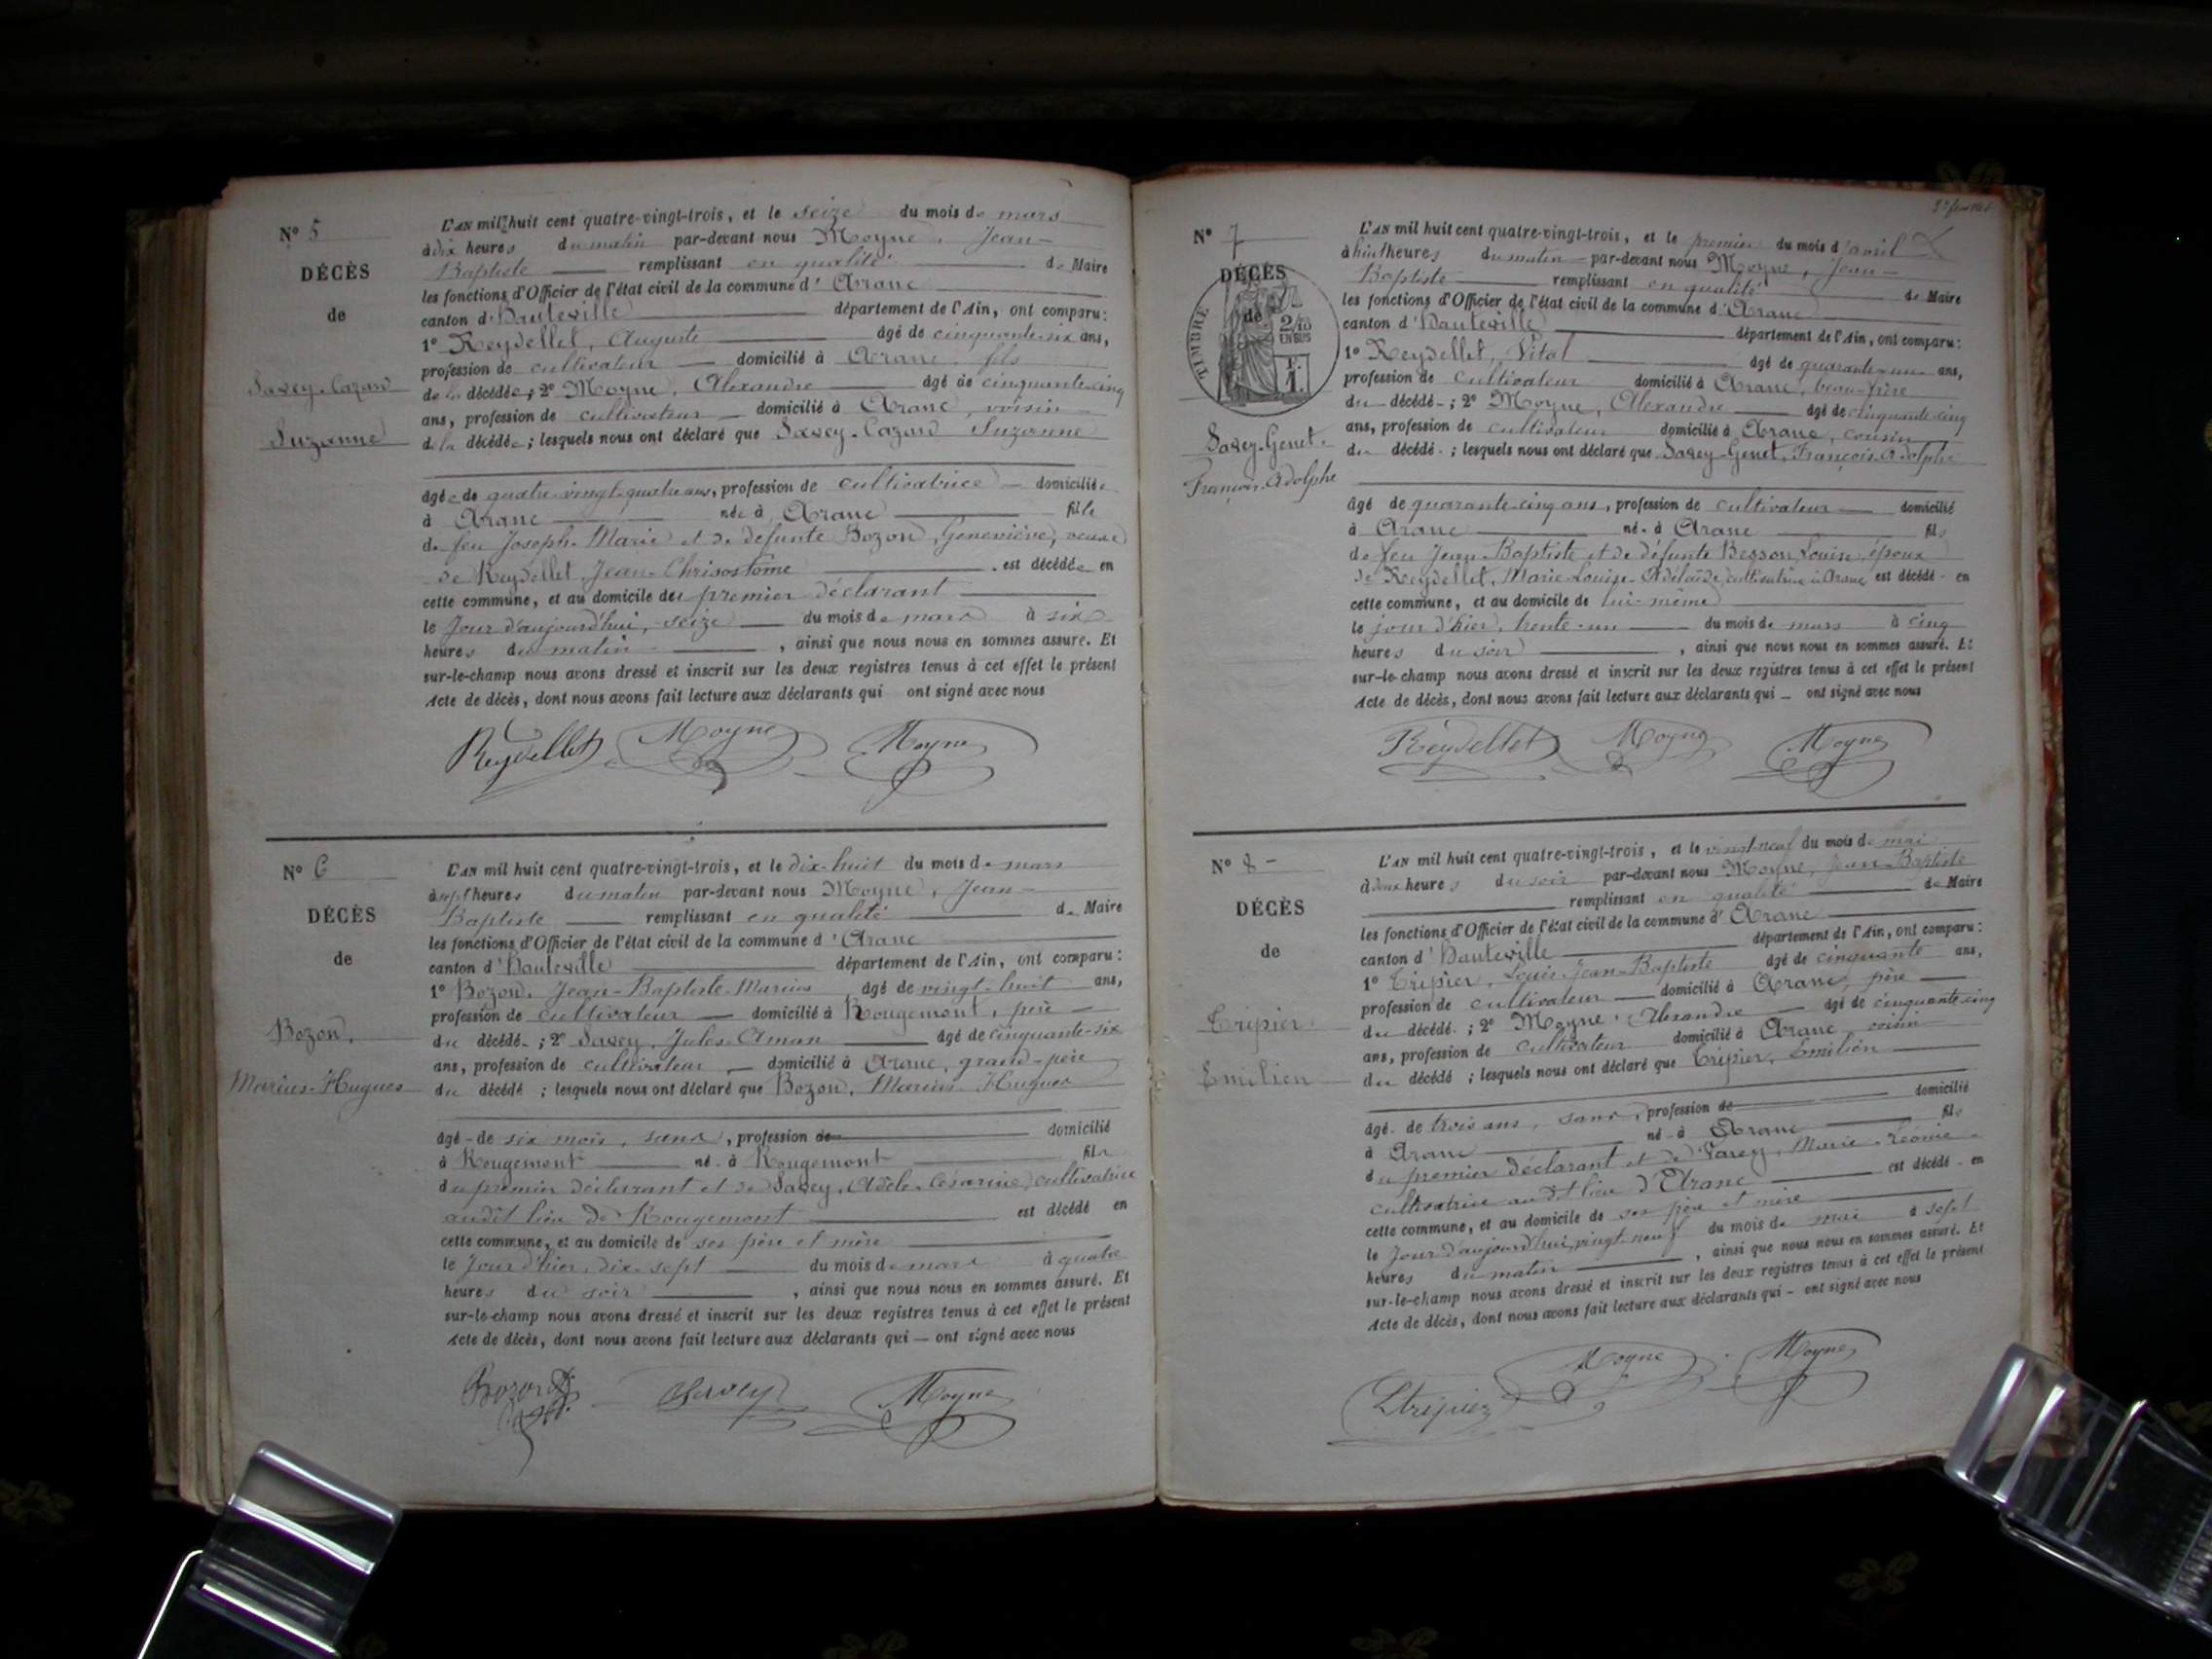 N° 5
DÉCÈS
de
Savey-Cazard
Suzanne
L'AN mil huit cent quatre-vingt-trois, et le seize du mois de mars
à dix heures du matin par-devant nous Moyne, Jean-
Baptiste remplissant en qualité de Maire
les fonctions d'Officier de l'état civil de la commune d'Aranc
canton d'Hauteville département de l'Ain, ont comparu :
1° Reydellet, Auguste âgé de cinquante-six ans,
profession de cultivateur domicilié à Aranc fils
de la décédée ; 2° Moyne, Alexandre âgé de cinquante-cinq
ans, profession de cultivateur domicilié à Aranc, voisin
de la décédée ; lesquels nous ont déclaré que Savey-Cazard Suzanne
âgée de quatre-vingt-quatre ans, profession de cultivatrice domiciliée
à Aranc née à Aranc fille
de feu Joseph-Marie et de défunte Bozon, Geneviève, veuve
de Reydellet Jean-Chrisostome est décédée en
cette commune, et au domicile du premier déclarant
le Jour d'aujourd'hui, seize du mois de mars à six
heures du matin , ainsi que nous nous en sommes assuré. Et
sur-le-champ nous avons dressé et inscrit sur les deux registres tenus à cet effet le présent
Acte de décès, dont nous avons fait lecture aux déclarants qui ont signé avec nous
Reydellet Moyne Moyne
N° 6
DÉCÈS
de
Bozon,
Marius-Hugues
L'AN mil huit cent quatre-vingt-trois, et le dix-huit du mois de mars
à sept heures du matin par-devant nous Moyne, Jean-
Baptiste remplissant en qualité de Maire
les fonctions d'Officier de l'état civil de la commune d'Aranc
canton d'Hauteville département de l'Ain, ont comparu :
1° Bozon, Jean-Baptiste-Marius âgé de vingt-huit ans,
profession de cultivateur domicilié à Rougemont, père
du décédé ; 2° Savey, Jules-Aman âgé de cinquante-six
ans, profession de cultivateur domicilié à Aranc, grand-père
du décédé ; lesquels nous ont déclaré que Bozon, Marius-Hugues
âgé de six mois, sans, profession de domicilié
à Rougemont né à Rougemont fils
du premier déclarant et de Savey, Adèle-Césarine, cultivatrice
audit lieu de Rougemont est décédé en
cette commune, et au domicile de ses père et mère
le Jour d'hier, dix-sept du mois de mars à quatre
heures du soir , ainsi que nous nous en sommes assuré. Et
sur-le-champ nous avons dressé et inscrit sur les deux registres tenus à cet effet le présent
Acte de décès, dont nous avons fait lecture aux déclarants qui ont signé avec nous
Bozon Savey Moyne
N° 7
DÉCÈS
de
TIMBRE
2/10
EN SUS
Savey-Genet
François-Adolphe
L'AN mil huit cent quatre-vingt-trois, et le premier du mois d'avril
à huit heures du matin par-devant nous Moyne, Jean-
Baptiste remplissant en qualité de Maire
les fonctions d'Officier de l'état civil de la commune d'Aranc
canton d'Hauteville département de l'Ain, ont comparu :
1° Reydellet, Vital âgé de quarante-un ans,
profession de cultivateur domicilié à Aranc, beau-frère
du décédé ; 2° Moyne, Alexandre âgé de cinquante-cinq
ans, profession de cultivateur domicilié à Aranc, cousin
du décédé ; lesquels nous ont déclaré que Savey-Genet, François-Adolphe
âgé de quarante-cinq ans, profession de cultivateur domicilié
à Aranc né à Aranc fils
de feu Jean-Baptiste et de défunte Besson, Louise, époux
de Reydellet, Marie-Louise-Adélaïde, cultivatrice à Aranc est décédé en
cette commune, et au domicile de lui-même
le jour d'hier, trente-un du mois de mars à cinq
heures du soir , ainsi que nous nous en sommes assuré. Et
sur-le-champ nous avons dressé et inscrit sur les deux registres tenus à cet effet le présent
Acte de décès, dont nous avons fait lecture aux déclarants qui ont signé avec nous
Reydellet Moyne Moyne
N° 8
DÉCÈS
de
Tripier
Emilien
L'AN mil huit cent quatre-vingt-trois, et le vingt-neuf du mois de mai
à deux heures du soir par-devant nous Moyne, Jean-Baptiste
remplissant en qualité de Maire
les fonctions d'Officier de l'état civil de la commune d'Aranc
canton d'Hauteville département de l'Ain, ont comparu :
1° Tripier, Louis-Jean-Baptiste âgé de cinquante ans,
profession de cultivateur domicilié à Aranc, père
du décédé ; 2° Moyne, Alexandre âgé de cinquante-cinq
ans, profession de cultivateur domicilié à Aranc, voisin
du décédé ; lesquels nous ont déclaré que Tripier, Emilien
âgé de trois ans, sans, profession de domicilié
à Aranc né à Aranc fils
du premier déclarant et de Varey, Marie-Léonie
cultivatrice audit lieu d'Aranc est décédé en
cette commune, et au domicile de ses père et mère
le Jour d'aujourd'hui, vingt-neuf du mois de mai à sept
heures du matin , ainsi que nous nous en sommes assuré. Et
sur-le-champ nous avons dressé et inscrit sur les deux registres tenus à cet effet le présent
Acte de décès, dont nous avons fait lecture aux déclarants qui ont signé avec nous
Moyne Moyne
Ltripier